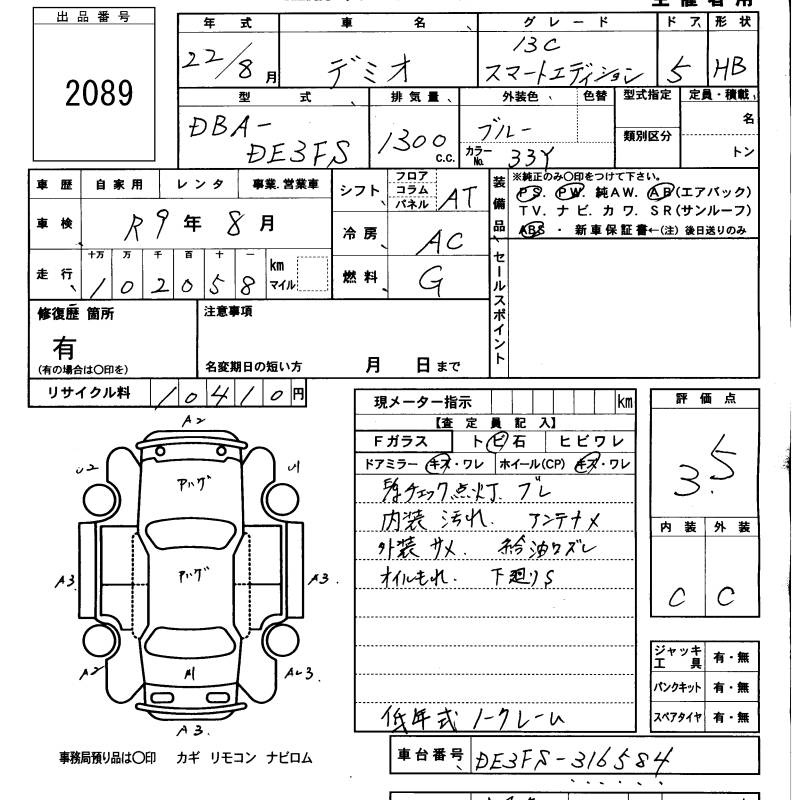 出品番号
2089
年式 車名 グレード ドア 形状
22/8月 デミオ 13C スマートエディション 5 HB
型式 排気量 外装色 色替 型式指定 定員・積載
DBA-DE3FS 1300 c.c. ブルー 類別区分 名
カラーNo. 33Y トン
車歴 自家用 レンタ 事業.営業車
車検 R9年8月
走行 十万 万 千 百 十 一 km マイル
102058
シフト フロア コラム パネル AT
冷房 AC
燃料 G
装備品
※純正のみ○印をつけて下さい。
PS. PW. 純AW. AB(エアバック)
TV. ナビ. カワ. SR(サンルーフ)
ABS ・ 新車保証書←(注) 後日送りのみ
セールスポイント
修復歴 箇所
有
(有の場合は○印を)
注意事項
名変期日の短い方 月 日まで
リサイクル料 10410円
現メーター指示 km
【査定員記入】
Fガラス トビ石 ヒビワレ
ドアミラー キズ・ワレ ホイール(CP) キズ・ワレ
チェック点灯 ブレ
内装 汚れ. アンテナメ
外装 サメ. 給油クズレ
オイルもれ. 下廻りS
低年式 ノークレーム
評価点
3.5
内装 外装
C C
ジャッキ工具 有・無
パンクキット 有・無
スペアタイヤ 有・無
A2
U2
U1
アハゲ
アハゲ
A3.
A3.
A2
A1
A3.
事務局預り品は○印 カギ リモコン ナビロム
車台番号 DE3FS-316584